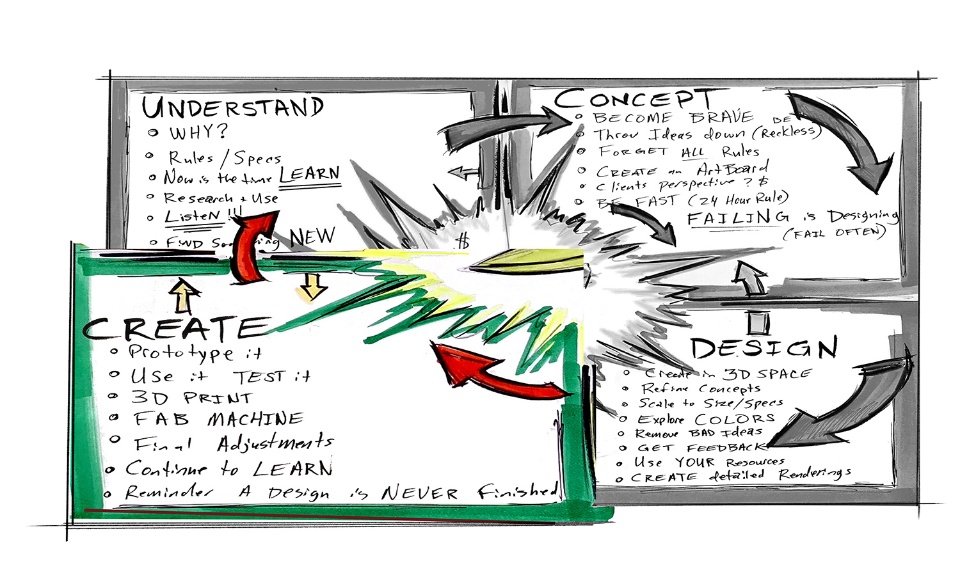 UNDERSTAND
WHY?
Rules/Specs
Now is the time LEARN
Research + Use
Listen!!!
FIND NEW
CONCEPT
BECOME BRAVE BE
Throw Ideas down (Reckless)
FORGET ALL Rules
CREATE an ArtBoard
Clients perspective ? $
BE FAST (24 Hour Rule)
FAILING is Designing
(FAIL OFTEN)
$
CREATE
Prototype it
Use it TEST it
3D PRINT
FAB MACHINE
Final Adjustments
Continue to LEARN
Reminder A Design is NEVER Finished
DESIGN
Create in 3D SPACE
Refine Concepts
Scale to Size/Specs
Explore COLORS
Remove BAD Ideas
GET FEEDBACK
Use YOUR Resources
CREATE detailed Renderings